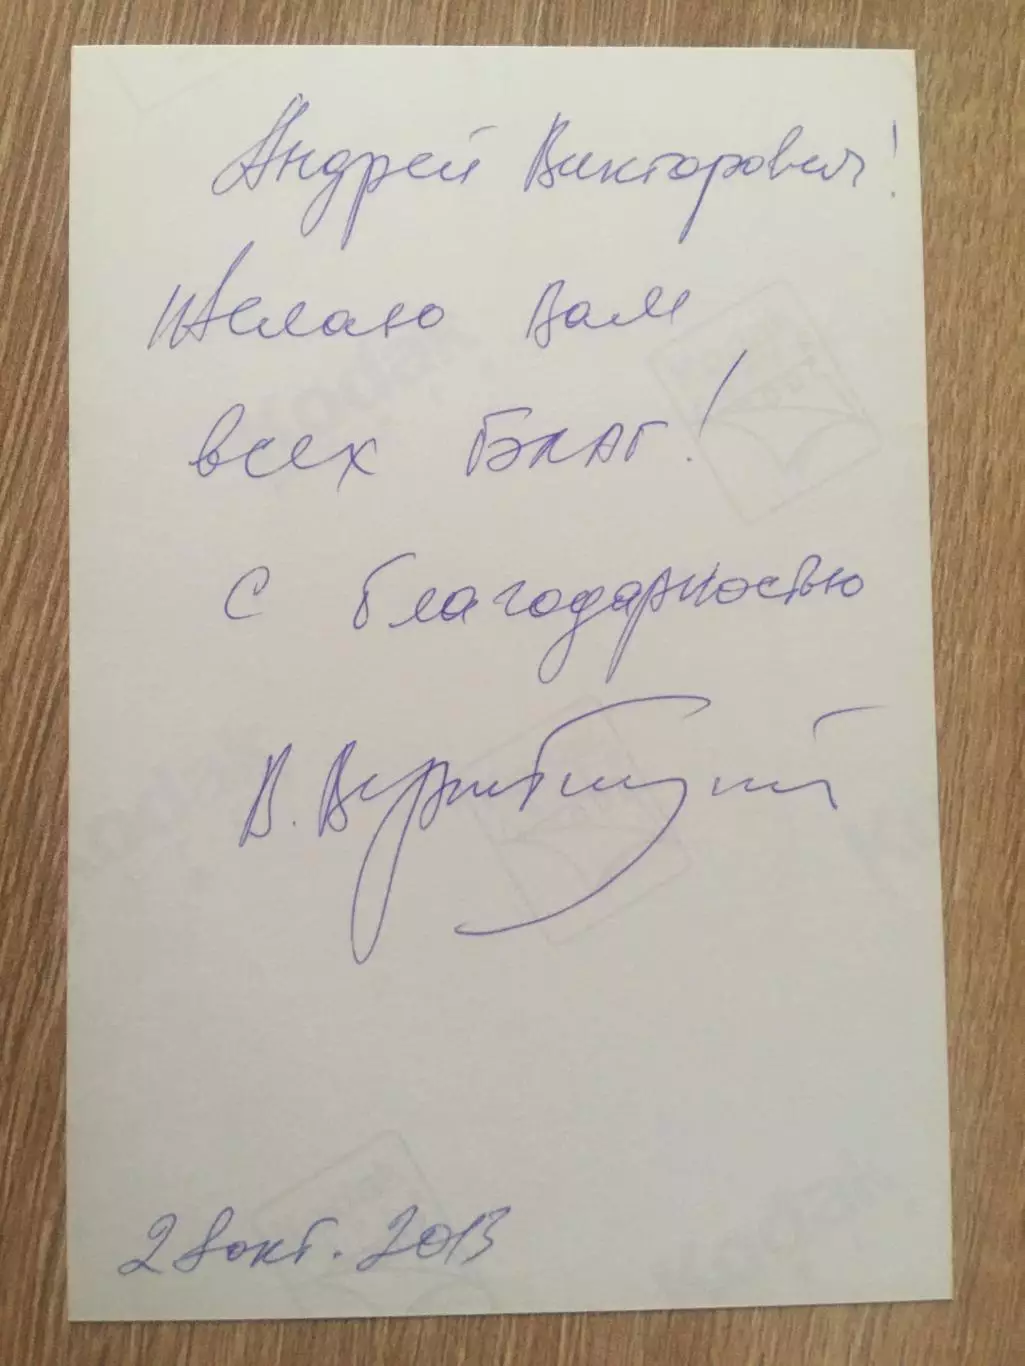 Андрей Викторович!
Желаю Вам
всех БЛАГ!
с благодарностью
В.
28 окт. 2013
Kodak